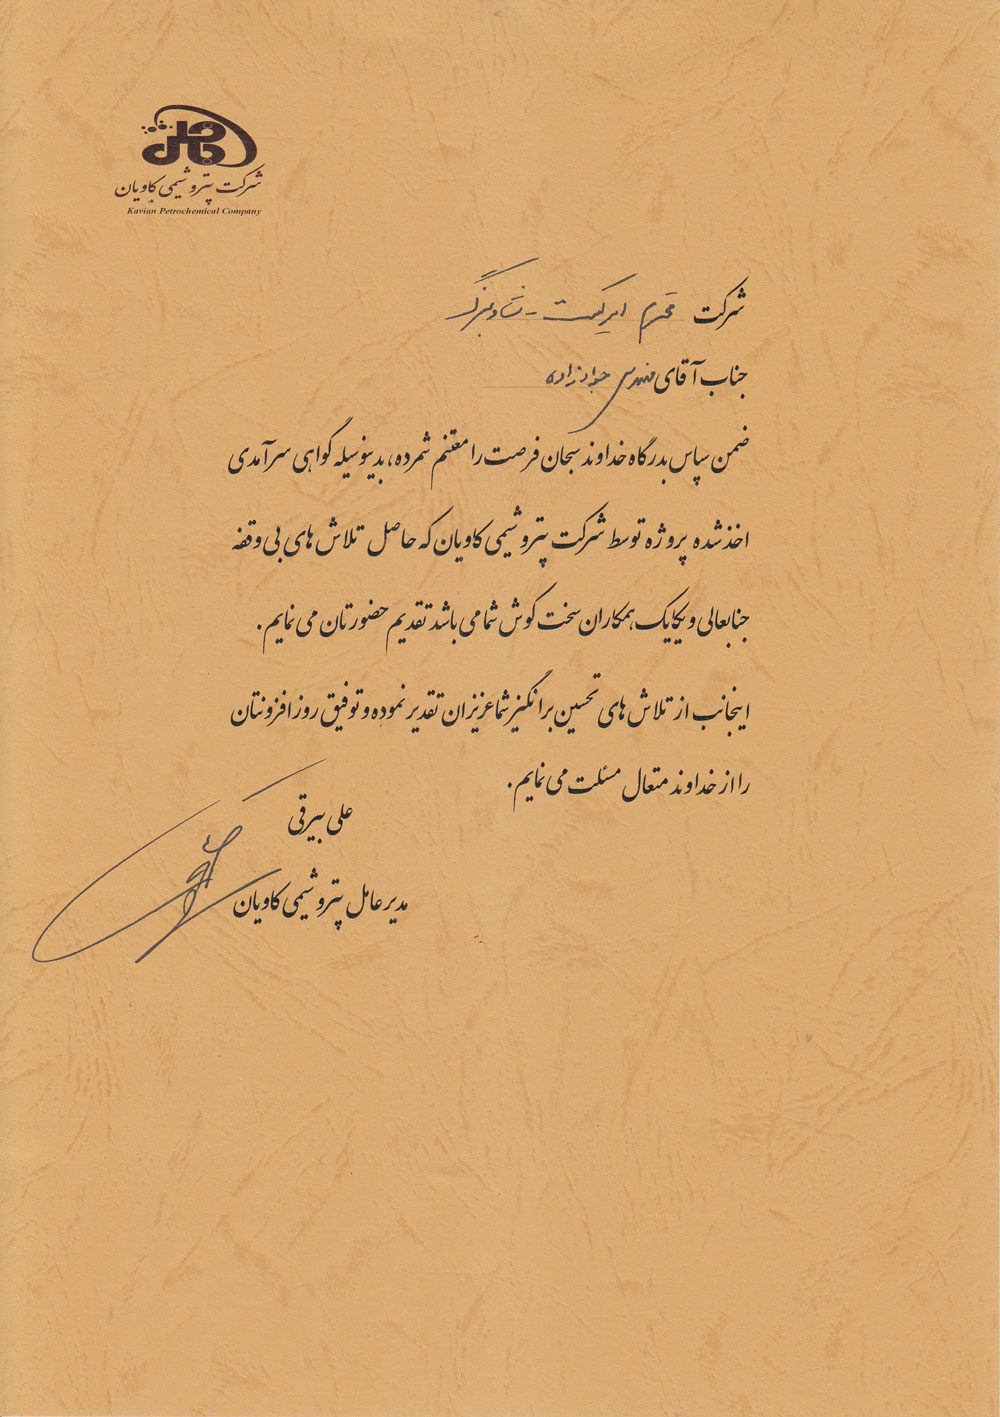 شرکت پتروشیمی کاویان
Kavian Petrochemical Company
شرکت محترم
جناب آقای مهندس جوادزاده
ضمن سپاس بدرگاه خداوند سبحان فرصت را مغتنم شمرده، بدینوسیله گواهی سرآمدی
اخذ شده پروژه توسط شرکت پتروشیمی کاویان که حاصل تلاش های بی وقفه
جنابعالی و یکایک همکاران سخت کوش شما می باشد تقدیم حضورتان می نمایم.
اینجانب از تلاش های تحسین برانگیز شما عزیزان تقدیر نموده و توفیق روزافزونتان
را از خداوند متعال مسئلت می نمایم.
علی بیرقی
مدیرعامل پتروشیمی کاویان